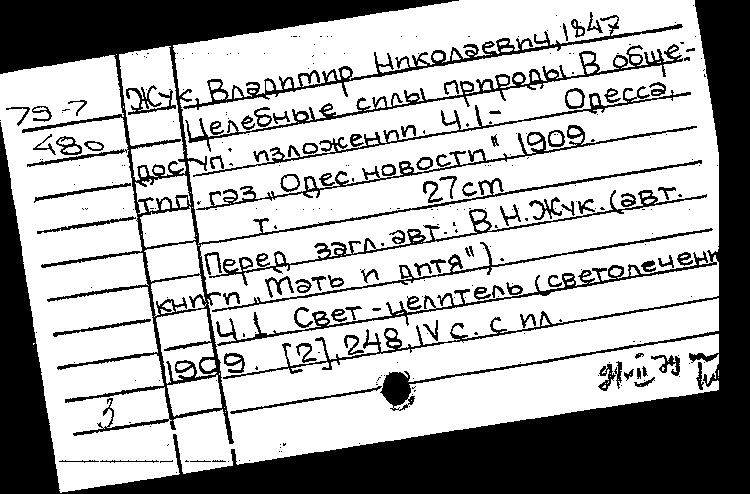 Жук, Владимир Николаевич, 1847
79-7
Целебные силы природы. В обще-
480
доступ: изложении. Ч.1.- Одесса,
тип. газ „Одес. новости", 1909.
т. 27cm
Перед загл. авт.: В.Н.Жук. (авт.
книги „Мать и дитя").
Ч.1. Свет-целитель (светолечени
1909. [2], 248, IV с. с ил.
3